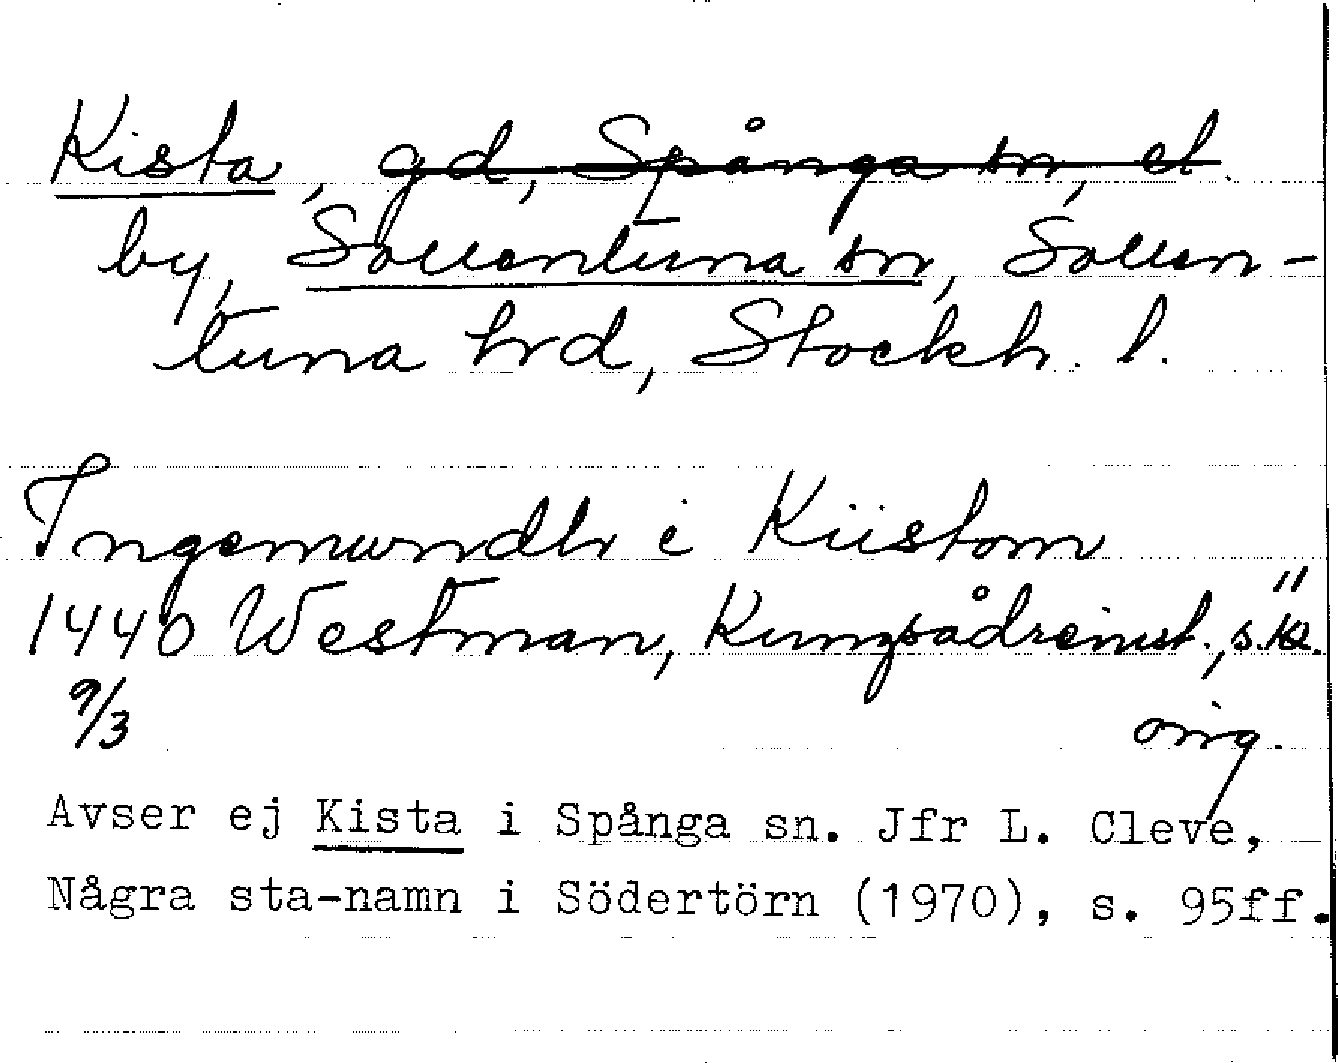 Kista, gd, Spånga sn, el
by, Sollentuna sn, Sollen-
tuna hrd, Stockh. l.
Ingemundh i Kiistom
1440 Westman, Kungsådreinst.,
9/3 orig.
Avser ej Kista i Spånga sn. Jfr L. Cleve,
Några sta-namn i Södertörn (1970), s. 95ff.